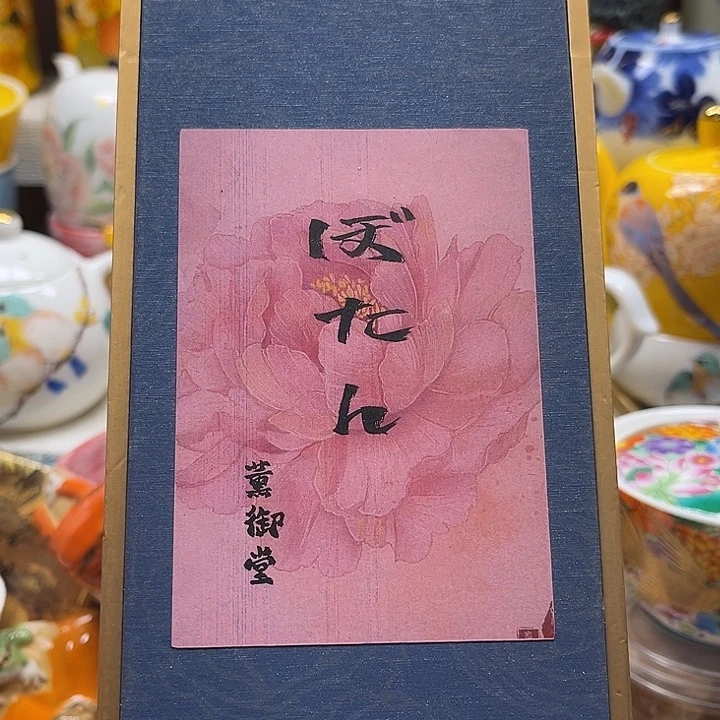 ぼたん
薫御堂